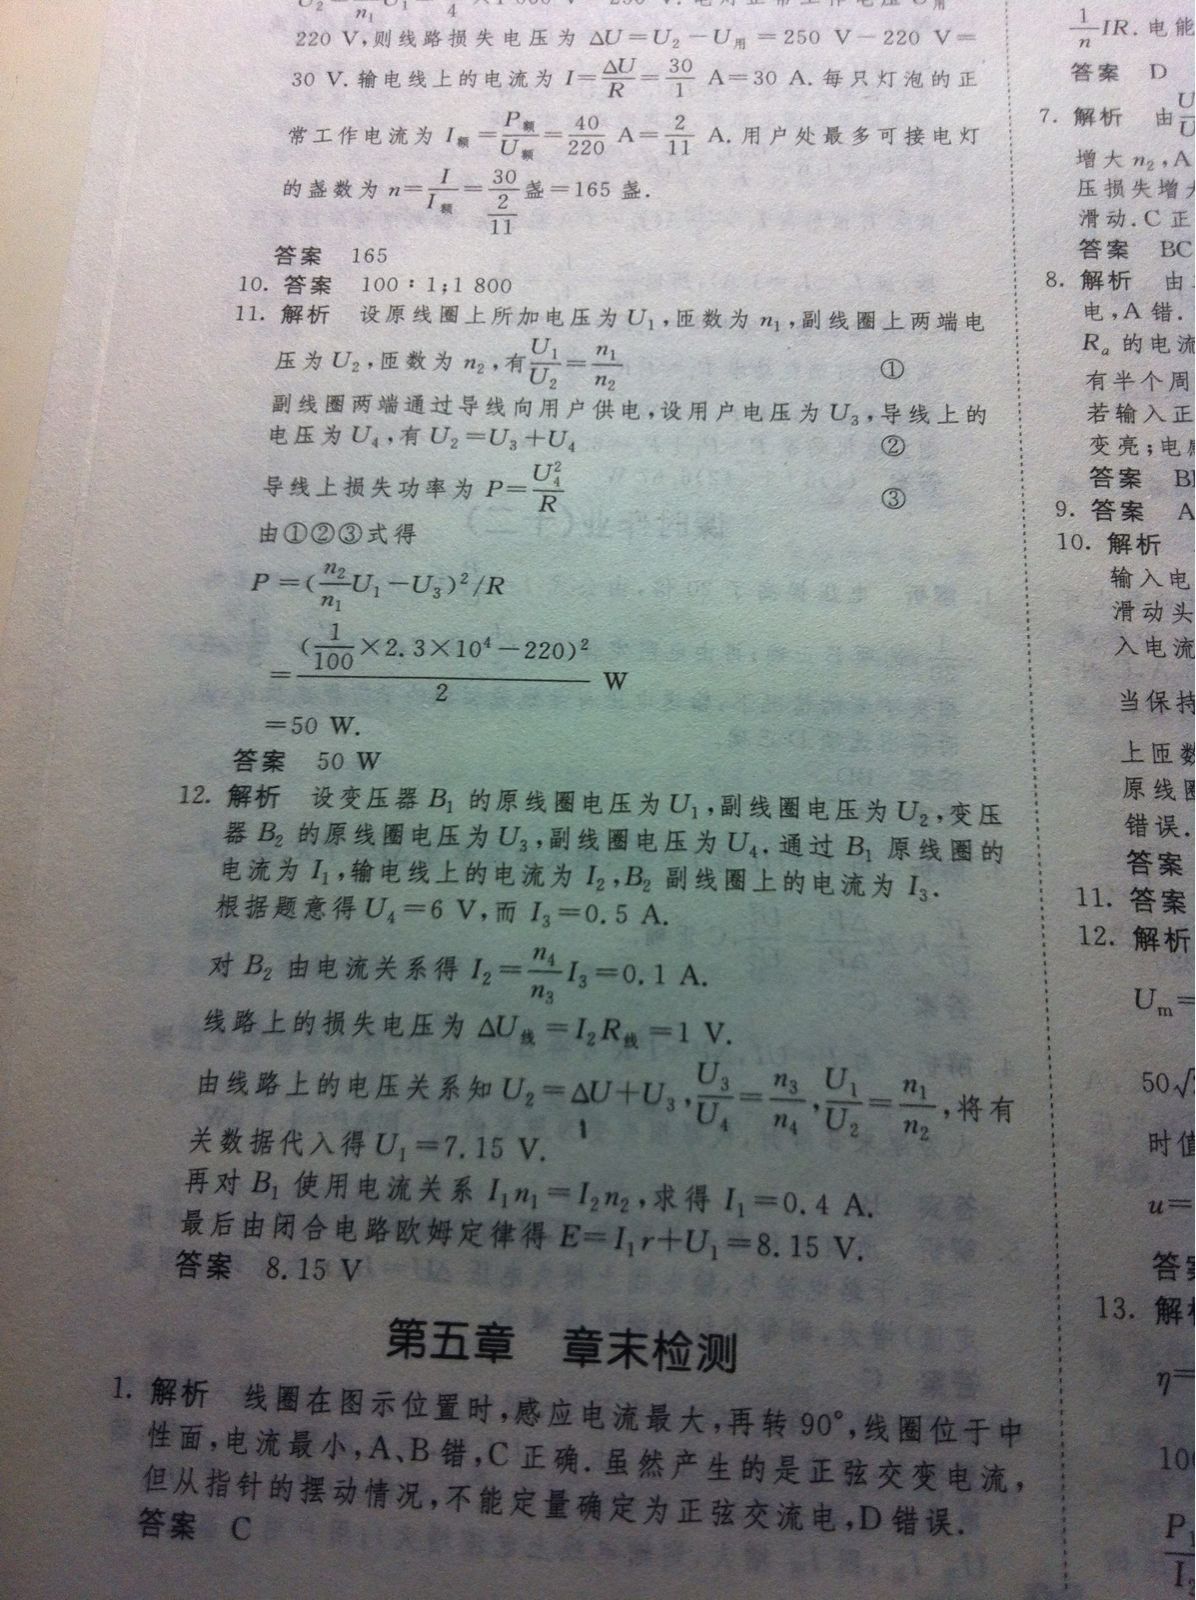 220 V,则线路损失电压为 ΔU=U₂-U用=250 V-220 V=
30 V.输电线上的电流为 I=ΔU/R=30/1 A=30 A.每只灯泡的正
常工作电流为 I额=P额/U额=40/220 A=2/11 A.用户处最多可接电灯
的盏数为 n=I/I额=30/(2/11)盏=165 盏.
答案 165
10. 答案 100∶1;1 800
11. 解析 设原线圈上所加电压为 U₁,匝数为 n₁,副线圈上两端电
压为 U₂,匝数为 n₂,有U₁/U₂=n₁/n₂ ①
副线圈两端通过导线向用户供电,设用户电压为 U₃,导线上的
电压为 U₄,有 U₂=U₃+U₄ ②
导线上损失功率为 P=U₄²/R ③
由①②③式得
P=(n₂/n₁U₁-U₃)²/R
=(1/100×2.3×10⁴-220)²/2 W
=50 W.
答案 50 W
12. 解析 设变压器 B₁ 的原线圈电压为 U₁,副线圈电压为 U₂,变压
器 B₂ 的原线圈电压为 U₃,副线圈电压为 U₄.通过 B₁ 原线圈的
电流为 I₁,输电线上的电流为 I₂,B₂ 副线圈上的电流为 I₃.
根据题意得 U₄=6 V,而 I₃=0.5 A.
对 B₂ 由电流关系得 I₂=n₄/n₃I₃=0.1 A.
线路上的损失电压为 ΔU线=I₂R线=1 V.
由线路上的电压关系知 U₂=ΔU+U₃,U₃/U₄=n₃/n₄,U₁/U₂=n₁/n₂,将有
关数据代入得 U₁=7.15 V.
再对 B₁ 使用电流关系 I₁n₁=I₂n₂,求得 I₁=0.4 A.
最后由闭合电路欧姆定律得 E=I₁r+U₁=8.15 V.
答案 8.15 V
第五章 章末检测
1. 解析 线圈在图示位置时,感应电流最大,再转 90°,线圈位于中
性面,电流最小,A、B 错,C 正确.虽然产生的是正弦交变电流,
但从指针的摆动情况,不能定量确定为正弦交流电,D 错误.
答案 C
1/n IR.电能
答案 D
7. 解析 由
增大 n₂,A
压损失增
滑动.C 正
答案 BC
8. 解析 由
电,A 错.
Rₐ 的电流
有半个周
若输入正
变亮;电
答案 B
9. 答案 A
10. 解析
输入电
滑动头
入电流
当保持
上匝数
原线圈
错误.
答案
11. 答案
12. 解析
Uₘ=
50√
时值
u=
答案
13. 解析
η=